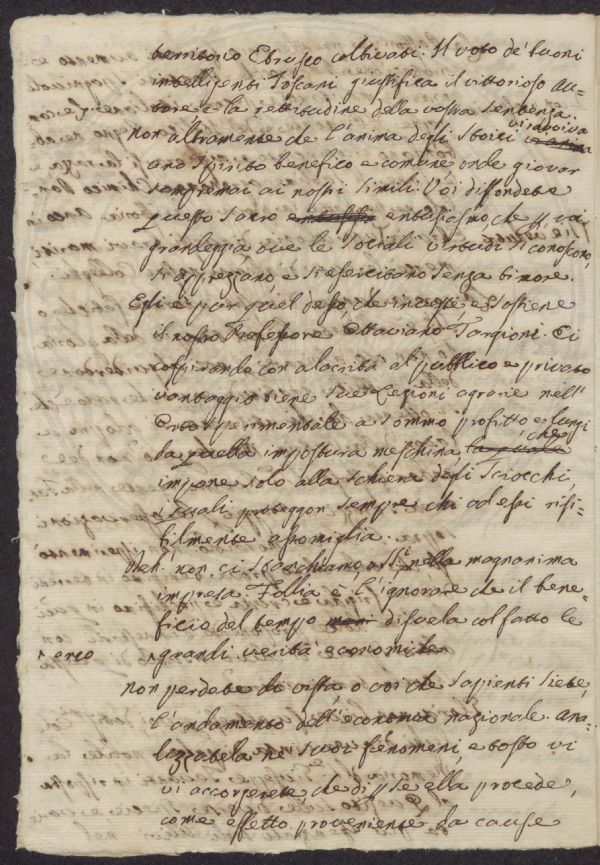 territorio Etrusco coltivati. Il voto de' buoni
intelligenti Toscani giustifica il vittorioso Au-
tore e la rettitudine della vostra sentenza.
Non altramente che l'anima degli Stoici vi avviva
uno spirito benefico e comune onde giovar
ai nostri simili. Voi diffondete
questo sacro entusiasmo, che in voi
grandeggia ove le sociali virtudi si conoscono,
si apprezzano e si esercitano senza timore.
Egli è pur quel desso, che investe e sostiene
il nostro Professore Ottaviano Targioni. Ei
cospirando con alacrità al pubblico e privato
vantaggio tiene sue Lezioni agrarie nell'
Orto sperimentale a sommo profitto e lungi
da quella impostura meschina, che
impone solo alla schiera degli Sciocchi,
i quali proteggon sempre chi ad essi risi-
bilmente assomiglia.
Deh! non ci stanchiamo nella magnanima
impresa. Follia è l'ignorare che il bene-
ficio del tempo disvela col fatto le
grandi verità economiche
Non perdete di vista, o voi che sapienti siete,
l'andamento dell'economia nazionale. Ana-
lizzatela ne' suoi fenomeni, e tosto vi
vi accorgerete che di per se ella procede,
come effetto proveniente da cause